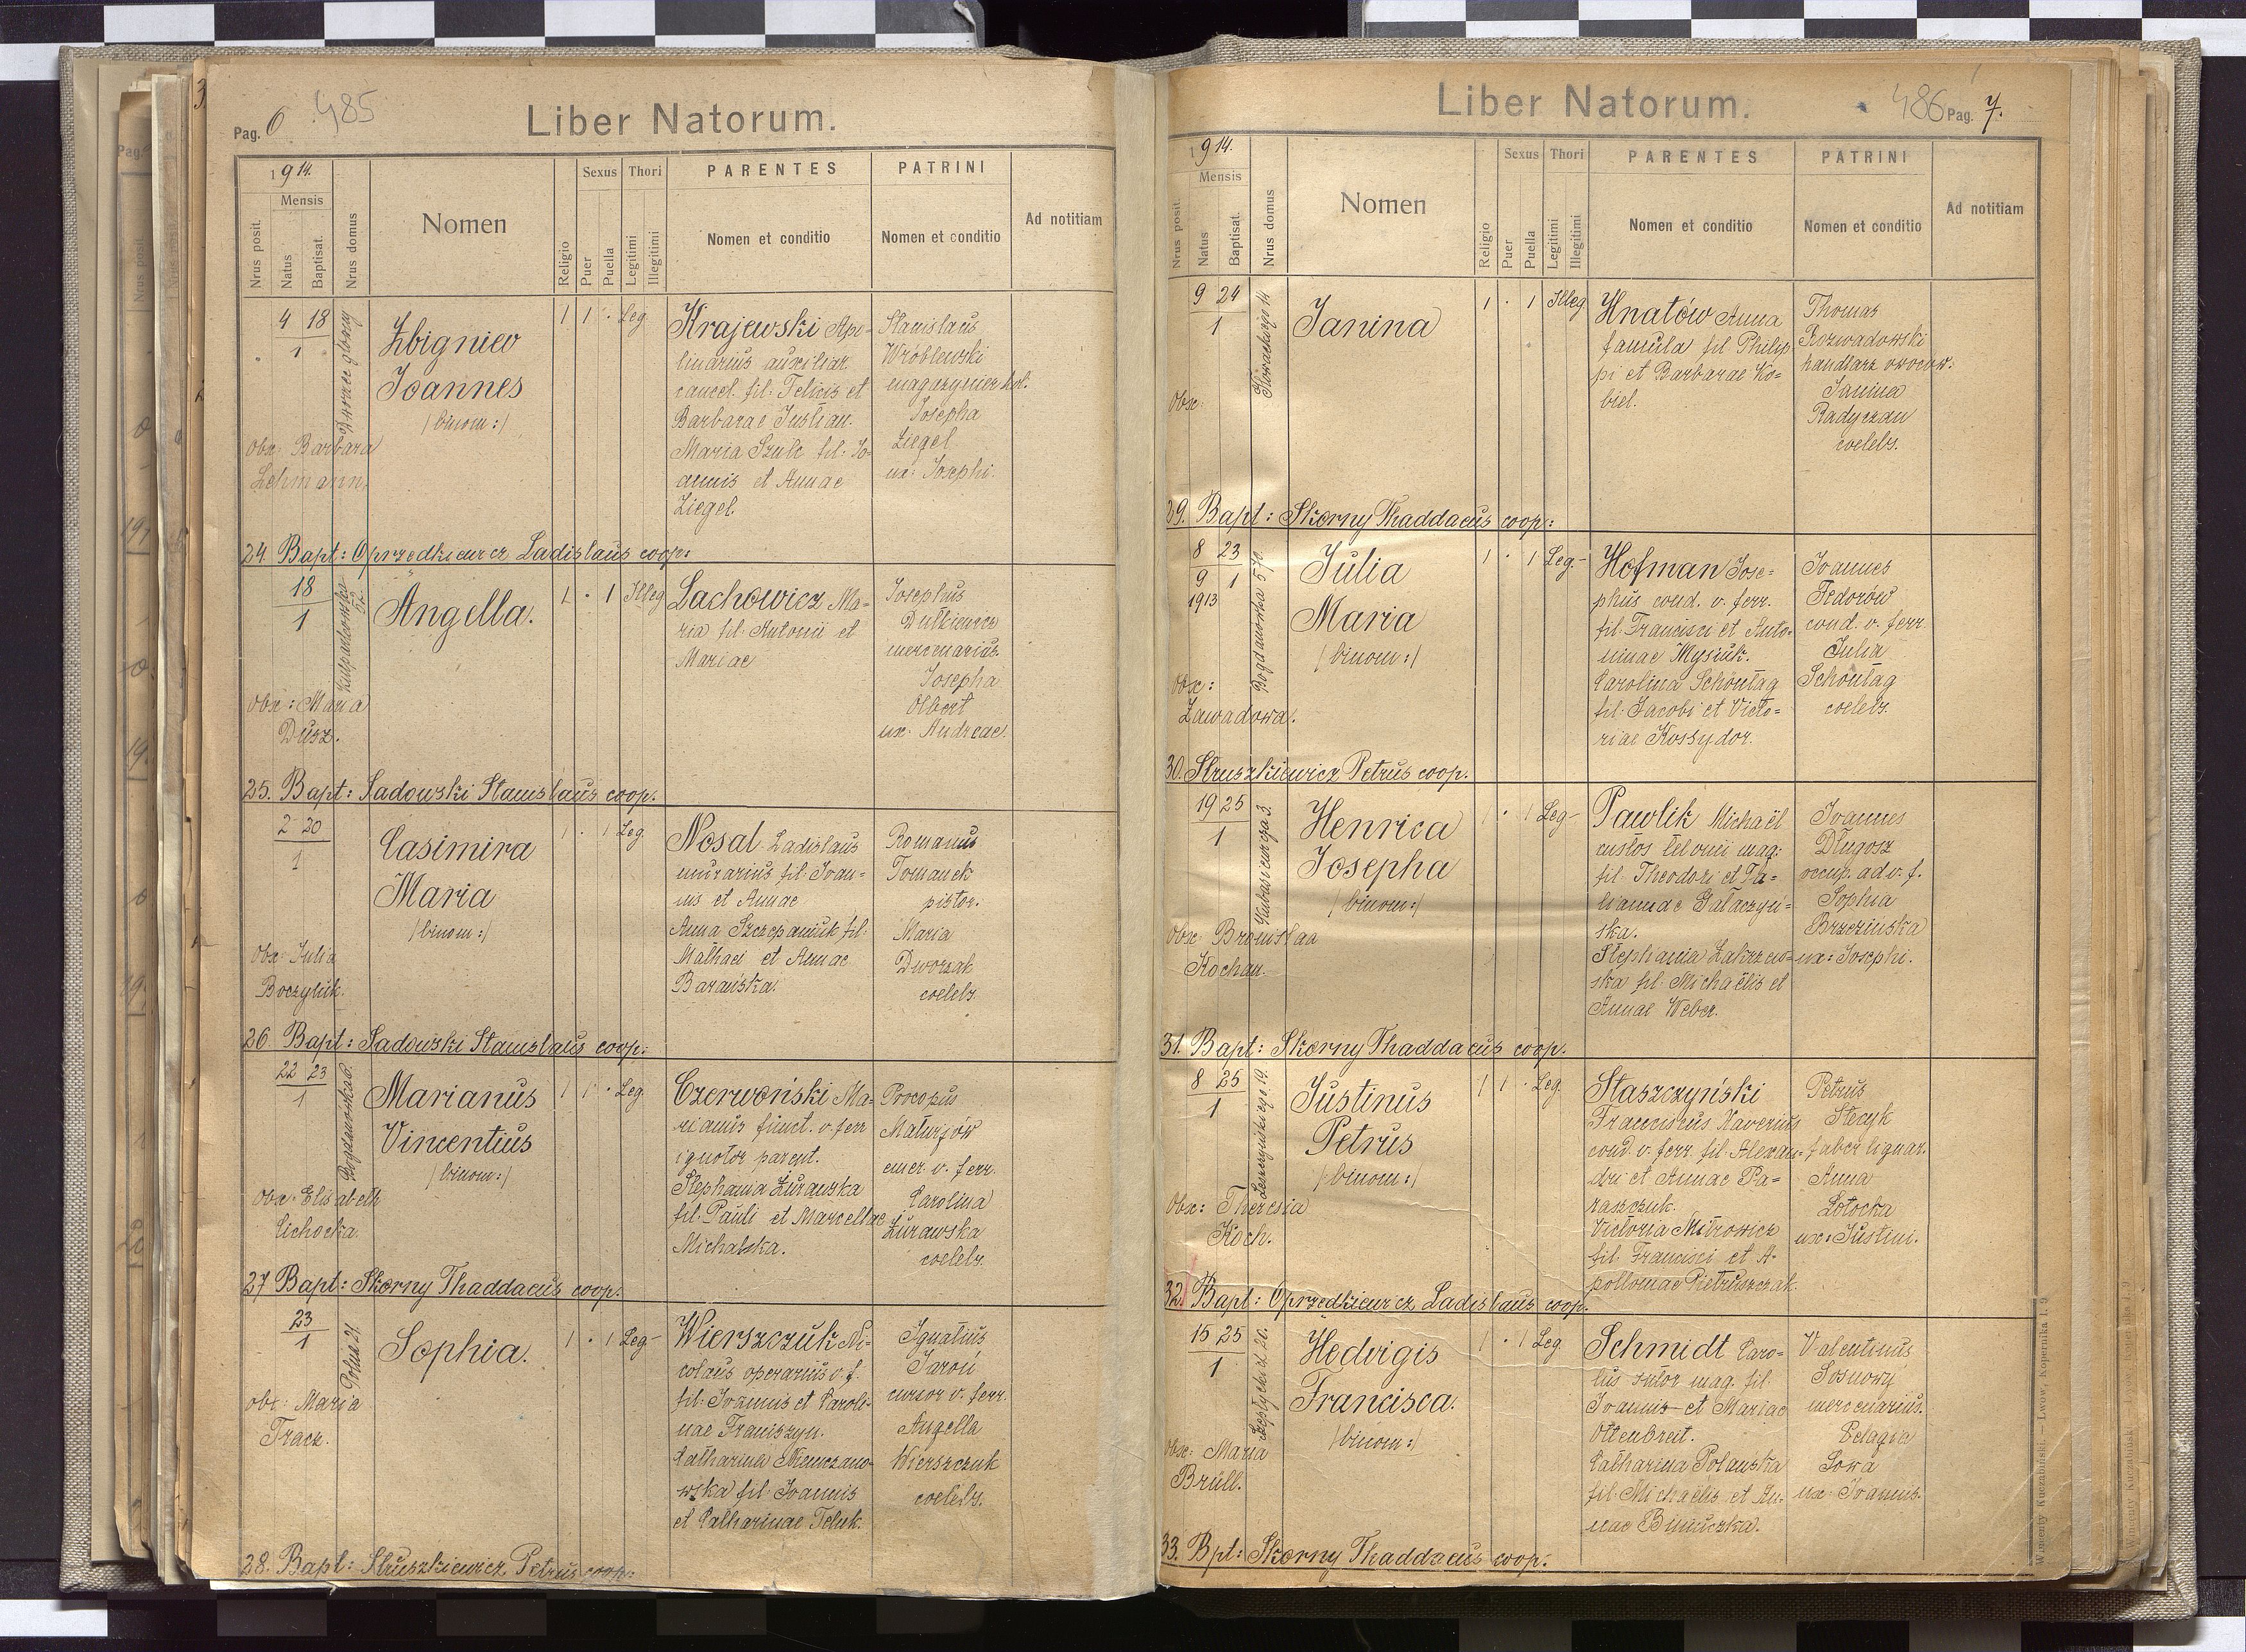 Pag. 6 485
Liber Natorum.
1914.
Mensis
Nrus posit.
Natus
Baptisat.
Nrus domus
Nomen
Religio
Sexus
Puer
Puella
Thori
Legitimi
Illegitimi
PARENTES
Nomen et conditio
PATRINI
Nomen et conditio
Ad notitiam
4 18
1
Dworzec główny
Zbigniew
Joannes
/binom:/
1 1 · Leg.
Krajewski Apo-
linarius auxiliar
cancel. fil: Felicis et
Barbarae Justian.
Maria Szulc fil: Jo-
annis et Annae
Ziegel.
Stanislaus
Wróblewski
magazynier kol.
Josepha
Ziegel
ux: Josephi.
Obs: Barbara
Lehmann.
24 Bapt: Oprzedkiewicz Ladislaus coop:
18
1
Kulparkowska
Angella.
1 · 1 Illeg
Lachowicz Ma-
ria fil: Antonii et
Mariae
Josephus
Dutkiewicz
mercenarius.
Josepha
Olbert
ux: Andreae.
Obs: Maria
Dusz.
25. Bapt: Sadowski Stanislaus coop.
2 20
1
Casimira
Maria
/binom:/
1 · 1 Leg
Nosal Ladislaus
murarius fil: Joan-
nis et Annae
Anna Szczepaniuk fil:
Mathaei et Annae
Barańska.
Romanus
Tomanek
pistor.
Maria
Dworzak
coelebs.
Obs: Julia
Boczyluk.
26. Bapt: Sadowski Stanislaus coop:
22 23
1
Bogdanówka 6.
Marianus
Vincentius
/binom:/
1 1 · Leg.
Czerwoński Ma-
rianus funct. v. ferr
ignotor parent.
Stephania Żurawska
fil: Pauli et Marcellae
Michalska.
Procopus
Maturjów
emer. v. ferr.
Carolina
Żurawska
coelebs.
Obs: Elisabeth
Cichocka.
27 Bapt: Skorny Thaddaeus coop.
23
1
Polna 21.
Sophia.
1 · 1 Leg-
Wierszczuk Ni-
colaus operarius v. f.
fil: Joannis et Caroli-
nae Franiszyn.
Catharina Niemczano-
wska fil: Joannis
et Catharinae Teluk.
Ignatius
Jaroń
cursor v. ferr.
Angella
Wierszczuk
coelebs.
obs: Maria
Tracz.
28. Bapt: Struszkiewicz Petrus coop:
Liber Natorum.
486 Pag. 7.
1914.
Mensis
Nrus posit.
Natus
Baptisat.
Nrus domus
Nomen
Religio
Sexus
Puer
Puella
Thori
Legitimi
Illegitimi
PARENTES
Nomen et conditio
PATRINI
Nomen et conditio
Ad notitiam
9 24
1
Słowackiego 14
Janina
1 · 1 Illeg
Hnatów Anna
famula fil: Philip-
pi et Barbarae Ko-
biel.
Thomas
Rozwadowski
handlarz owoców.
Janina
Radyczan
coelebs.
Obs:
29. Bapt: Skorny Thaddaeus coop:
8 23
9 1
1913
Bogdanówka 570.
Julia
Maria
/binom:/
1 · 1 Leg.-
Hofman Jose-
phus cond. v. ferr.
fil: Francisci et Anto-
ninae Mysiuk.
Carolina Schöntag
fil: Jacobi et Victo-
riae Kossydor.
Joannes
Fedorów
cond. v. ferr
Julia
Schöntag
coelebs.
Obs:
Zawadowa.
30. Struszkiewicz Petrus coop.
19 25
1
Kubasiewicza 3.
Henrica
Josepha
/binom:/
1 · 1 Leg-
Pawlik Michaël
custos telonii mag:
fil: Theodori et Ta-
tiannae Gałaczyń-
ska.
Stephania Zakrzew-
ska fil: Michaëlis et
Annae Weber.
Joannes
Długosz
occup. ad v. f.
Sophia
Brzezińska
ux: Josephi.
Obs: Bronislaa
Kochan.
31. Bapt: Skorny Thaddaeus coop.
8 25
1
Leszczyńskiego 19.
Justinus
Petrus
/binom:/
1 1 · Leg.
Staszczyński
Franciscus Xaverius
cond. v. ferr. fil: Alexan-
dri et Annae Pa-
raszczuk.
Victoria Mitrowicz
fil: Francisci et A-
polloniae Pietruszczak.
Petrus
Stecyk
faber lignar.
Anna
Łotocka
ux: Justini.
Obs: Theresia
Koch.
32. Bapt: Oprzedkiewicz Ladislaus coop.
15 25
1
Szeptyckich 20.
Hedvigis
Francisca.
/binom:/
1 · 1 Leg
Schmidt Caro-
lus sutor mag. fil:
Joannis et Mariae
Ottenbreit.
Catharina Polańska
fil: Michaëlis et An-
nae Binuczka.
Valentinus
Sosnowy
mercenarius.
Pelagia
Sowa
ux: Joannis.
Obs: Maria
Brüll.
33. Bpt: Skorny Thaddaeus coop.
Wincenty Kuczabiński. — Lwów, Kopernika l. 9